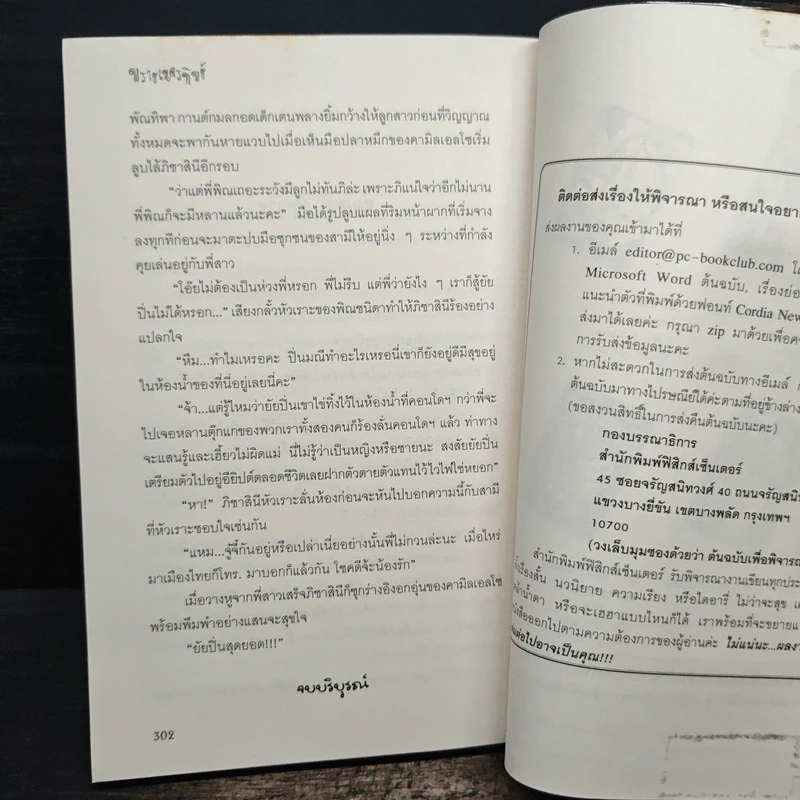 พรายเหสรฑิพย์
พัณทิพา กานต์กมลกอดเด็กเตนพลางยิ้มกว้างให้ลูกสาวก่อนที่วิญญาณ
ทั้งหมดจะพากันหายแวบไปเมื่อเห็นมือปลาหมึกของคามิลเอลโซเริ่ม
ลูบไล้ภิชาสินีอีกรอบ
“ว่าแต่พี่พิณเถอะระวังมีลูกไม่ทันภิล่ะ เพราะภิแน่ใจว่าอีกไม่นาน
พี่พิณก็จะมีหลานแล้วนะคะ” มือได้รูปลูบแผลที่ริมหน้าผากที่เริ่มจาง
ลงทุกทีก่อนจะมาตะปบมือซุกซนของสามีให้อยู่นิ่ง ๆ ระหว่างที่กำลัง
คุยเล่นอยู่กับพี่สาว
“โอ๊ยไม่ต้องเป็นห่วงพี่หรอก พี่ไม่รีบ แต่พี่ว่ายังไง ๆ เราก็สู้ยัย
ปิ่นไม่ได้หรอก...” เสียงกลั้วหัวเราะของพิณชนิดาทำให้ภิชาสินีร้องอย่าง
แปลกใจ
“หืม...ทำไมเหรอคะ ปิ่นมณีทำอะไรเหรอนี่เขาก็ยังอยู่ดีมีสุขอยู่
ในห้องน้ำของที่นี่อยู่เลยนี่คะ”
“จ้า...แต่รู้ไหมว่ายัยปิ่นเขาไข่ทิ้งไว้ในห้องน้ำที่คอนโดฯ กว่าพี่จะ
ไปเจอหลานตุ๊กแกของพวกเราทั้งสองคนก็ร้องลั่นคอนโดฯ แล้ว ท่าทาง
จะแสนรู้และเฮี้ยวไม่ผิดแม่ นี่ไม่รู้ว่าเป็นหญิงหรือชายนะ สงสัยยัยปิ่น
เตรียมตัวไปอยู่อียิปต์ตลอดชีวิตเลยฝากตัวตายตัวแทนไว้ไวไฟไข่หยอก”
“หา!” ภิชาสินีหัวเราะลั่นห้องก่อนจะหันไปบอกความนี้กับสามี
ที่หัวเราะชอบใจเช่นกัน
“แหม...จู๋จี๋กันอยู่หรือเปล่าเนี่ยอย่างนั้นพี่ไม่กวนล่ะนะ เมื่อไหร่
มาเมืองไทยก็โทร. มาบอกก็แล้วกัน โชคดีจ้ะน้องรัก”
เมื่อวางหูจากพี่สาวเสร็จภิชาสินีก็ซุกร่างอิงอกอุ่นของคามิลเอลโซ
พร้อมพึมพำอย่างแสนจะสุขใจ
“ยัยปิ่นสุดยอด!!!”
จบบริบูรณ์
302
ติดต่อส่งเรื่องให้พิจารณา หรือสนใจอยา
ส่งผลงานของคุณเข้ามาได้ที่
1. อีเมล์ editor@pc-bookclub.com โด
Microsoft Word ต้นฉบับ, เรื่องย่อ
แนะนำตัวที่พิมพ์ด้วยฟอนท์ Cordia New
ส่งมาได้เลยค่ะ กรุณา zip มาด้วยเพื่อคว
การรับส่งข้อมูลนะคะ
2. หากไม่สะดวกในการส่งต้นฉบับทางอีเมล์ ก
ต้นฉบับมาทางไปรษณีย์ได้ค่ะตามที่อยู่ข้างล่าง
(ขอสงวนสิทธิ์ในการส่งคืนต้นฉบับนะคะ)
กองบรรณาธิการ
สำนักพิมพ์ฟิสิกส์เซ็นเตอร์
45 ซอยจรัญสนิทวงศ์ 40 ถนนจรัญสนิท
แขวงบางยี่ขัน เขตบางพลัด กรุงเทพฯ
10700
(วงเล็บมุมซองด้วยว่า ต้นฉบับเพื่อพิจารณ
สำนักพิมพ์ฟิสิกส์เซ็นเตอร์ รับพิจารณางานเขียนทุกประ
เรื่องสั้น นวนิยาย ความเรียง หรือไดอารี่ ไม่ว่าจะสุข เค
น้ำตา หรือจะเฮฮาแบบไหนก็ได้ เราพร้อมที่จะขยายแ
ออกไปตามความต้องการของผู้อ่านค่ะ ไม่แน่นะ...ผลงา
ต่อไปอาจเป็นคุณ!!!